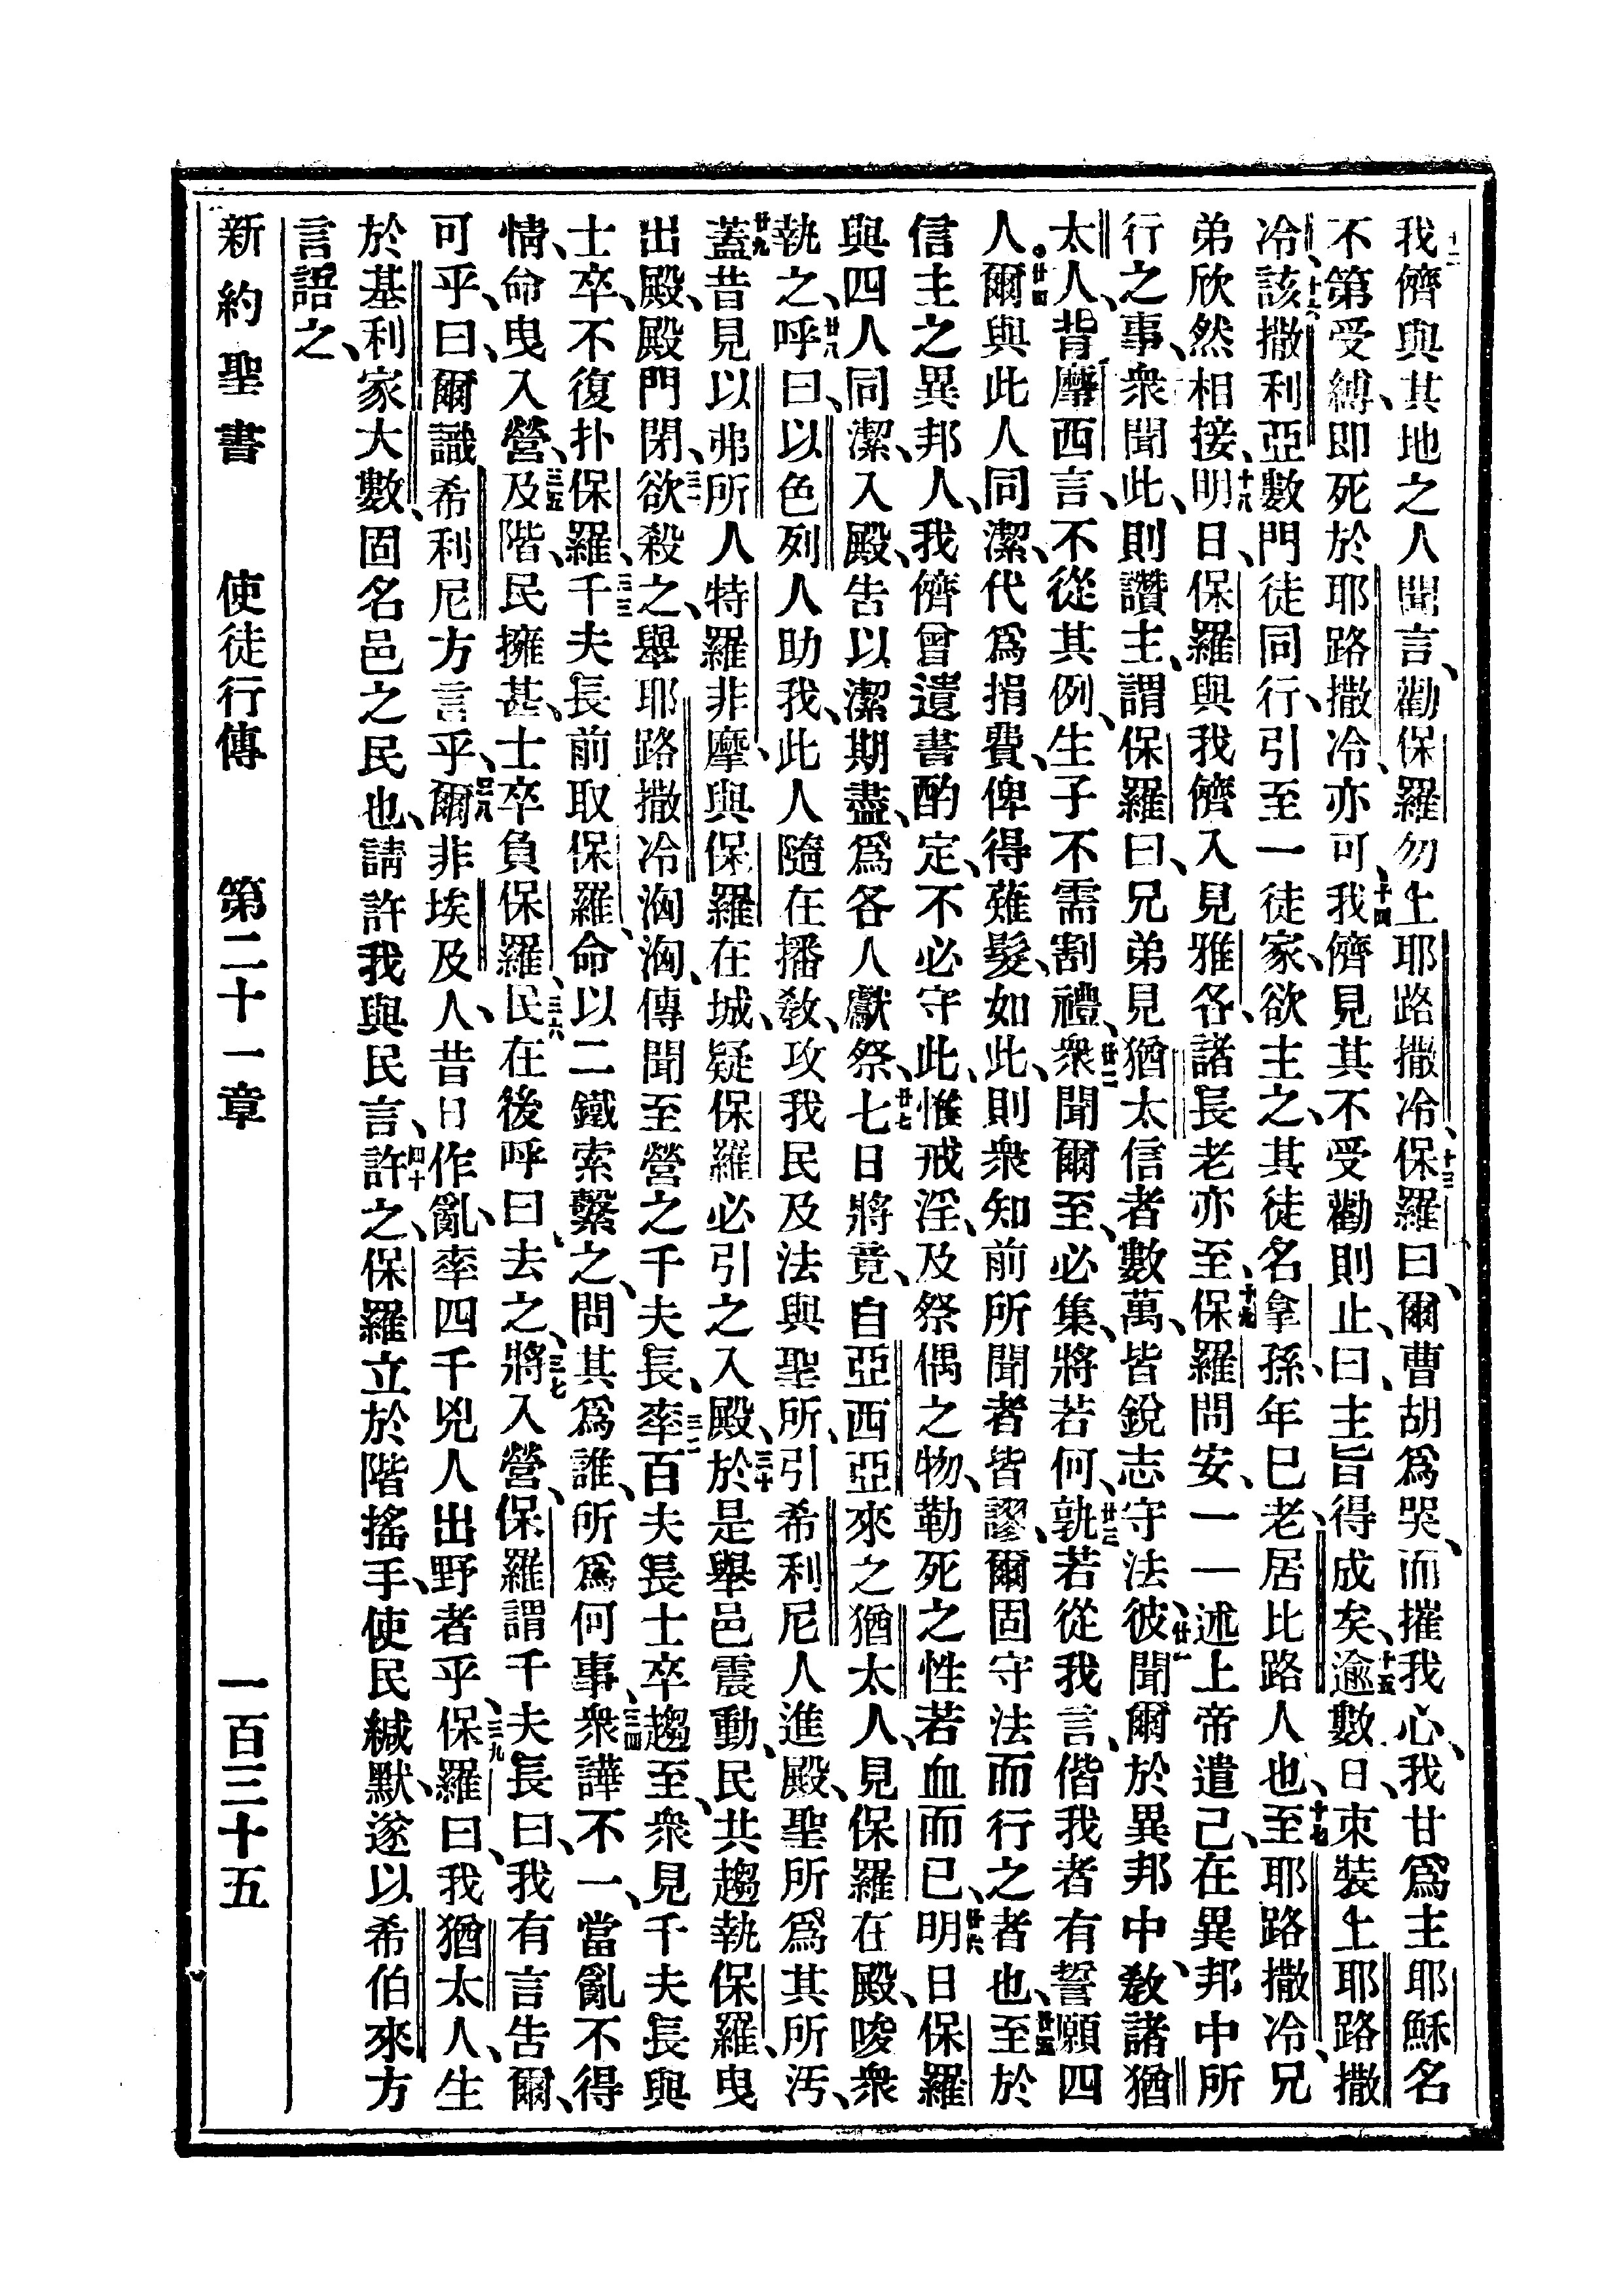 十二我儕與其地之人聞言、勸保羅勿上耶路撒冷、十三保羅曰、爾曹胡爲哭、而摧我心、我甘爲主耶穌名
不第受縛、卽死於耶路撒冷、亦可、十四我儕見其不受勸則止、曰、主旨得成矣、十五逾數日、束裝上耶路撒
冷、十六該撒利亞數門徒同行、引至一徒家、欲主之、其徒名拿孫、年已老、居比路人也、十七至耶路撒冷、兄
弟欣然相接、十八明日、保羅與我儕入見雅各、諸長老亦至、十九保羅問安、一一述上帝遣己、在異邦中所
行之事、衆聞此、則讚主、謂保羅曰、兄弟見猶太信者數萬、皆銳志守法、廿一彼聞爾於異邦中、敎諸猶
太人、背摩西言、不從其例、生子不需割禮、廿二衆聞爾至、必集、將若何、廿三孰若從我言、偕我者有誓願四
人、廿四爾與此人同潔、代爲捐費、俾得薙髮、如此、則衆知前所聞者皆謬、爾固守法而行之者也、廿五至於
信主之異邦人、我儕曾遺書酌定、不必守此、惟戒淫、及祭偶之物、勒死之性若血而已、廿六明日保羅
與四人同潔、入殿、告以潔期盡、爲各人獻祭、廿七七日將竟、自亞西亞來之猶太人、見保羅在殿、唆衆
執之、廿八呼曰、以色列人助我、此人隨在播敎、攻我民及法與聖所、引希利尼人進殿、聖所爲其所污、
廿九蓋昔見以弗所人特羅非摩、與保羅在城、疑保羅必引之入殿、三十於是舉邑震動、民共趨執保羅、曳
出殿、殿門閉、三一欲殺之、舉耶路撒冷洶洶、傳聞至營之千夫長、三二率百夫長士卒趨至、衆見千夫長與
士卒、不復扑保羅、三三千夫長前取保羅、命以二鐵索繫之、問其爲誰、所爲何事、三四衆譁不一、當亂不得
情、命曳入營、三五及階、民擁甚、士卒負保羅、三六民在後呼曰、去之、三七將入營、保羅謂千夫長曰、我有言告爾、
可乎、曰、爾識希利尼方言乎、三八爾非埃及人、昔日作亂、率四千兇人出野者乎、三九保羅曰、我猶太人、生
於基利家大數、固名邑之民也、請許我與民言、四十許之、保羅立於階搖手、使民緘默、遂以希伯來方
言語之、
新約聖書　使徒行傳　第二十一章　一百三十五